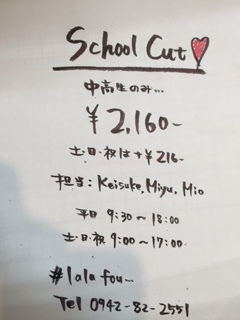 School Cut
中高生のみ...
¥2,160-
土・日・祝は+¥216-
担当:Keisuke,Miyu,Mio
平日 9:30～18:00
土・日・祝 9:00～17:00
#lala fou...
Tel 0942-82-2551